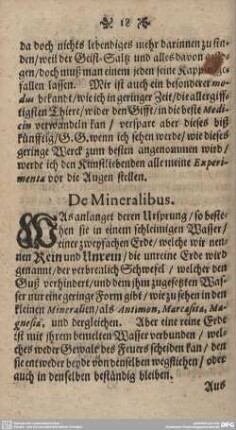 18
da doch nichts lebendiges mehr darinnen zu fin-
den/ weil der Geist-Saltz und alles davon
gen/ doch muß man einem jeden seine Kappe
fallen lassen. Mir ist auch ein besonderer mo-
dus bekandt/ wie ich in geringer Zeit/ die allergiff-
tigsten Thiere/ wider den Gifft/ in die beste Medi-
cin verwandeln kan/ verspare aber dieses biß
künfftig/ G. G. wenn ich sehen werde/ wie dieses
geringe Werck zum besten angenommen wird/
werde ich den Kunstliebenden alle meine Experi-
menta vor die Augen stellen.
De Mineralibus.
WAs anlanget deren Ursprung/ so beste-
hen sie in einem schleimigen Wasser/
einer zweyfachen Erde/ welche wir nen-
nen Rein und Unrein/ die unreine Erde wird
genannt/ der verbrenlich Schwefel/ welcher den
Guß verhindert/ und dem ihm zugesetzten Was-
ser nur eine geringe Form gibt/ wie zu sehen in den
kleinen Mineralien/ als Antimon, Marcasita, Ma-
gnesia, und dergleichen. Aber eine reine Erde
ist mit ihrem bemelten Wasser verbunden/ wel-
ches weder Gewalt des Feuers scheiden kan/ den
sie entweder beyde von denselben wegfliehen/ oder
auch in denselben beständig bleiben.
Aus